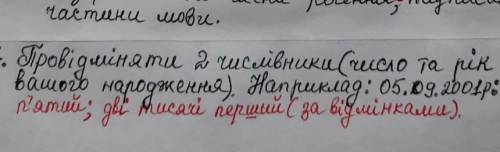 частини мови.
Провідміняти 2 числівники (число та рік
вашого народження). Наприклад: 05.09.2001р:
п'ятий; дві тисячі перший (за відмінками).